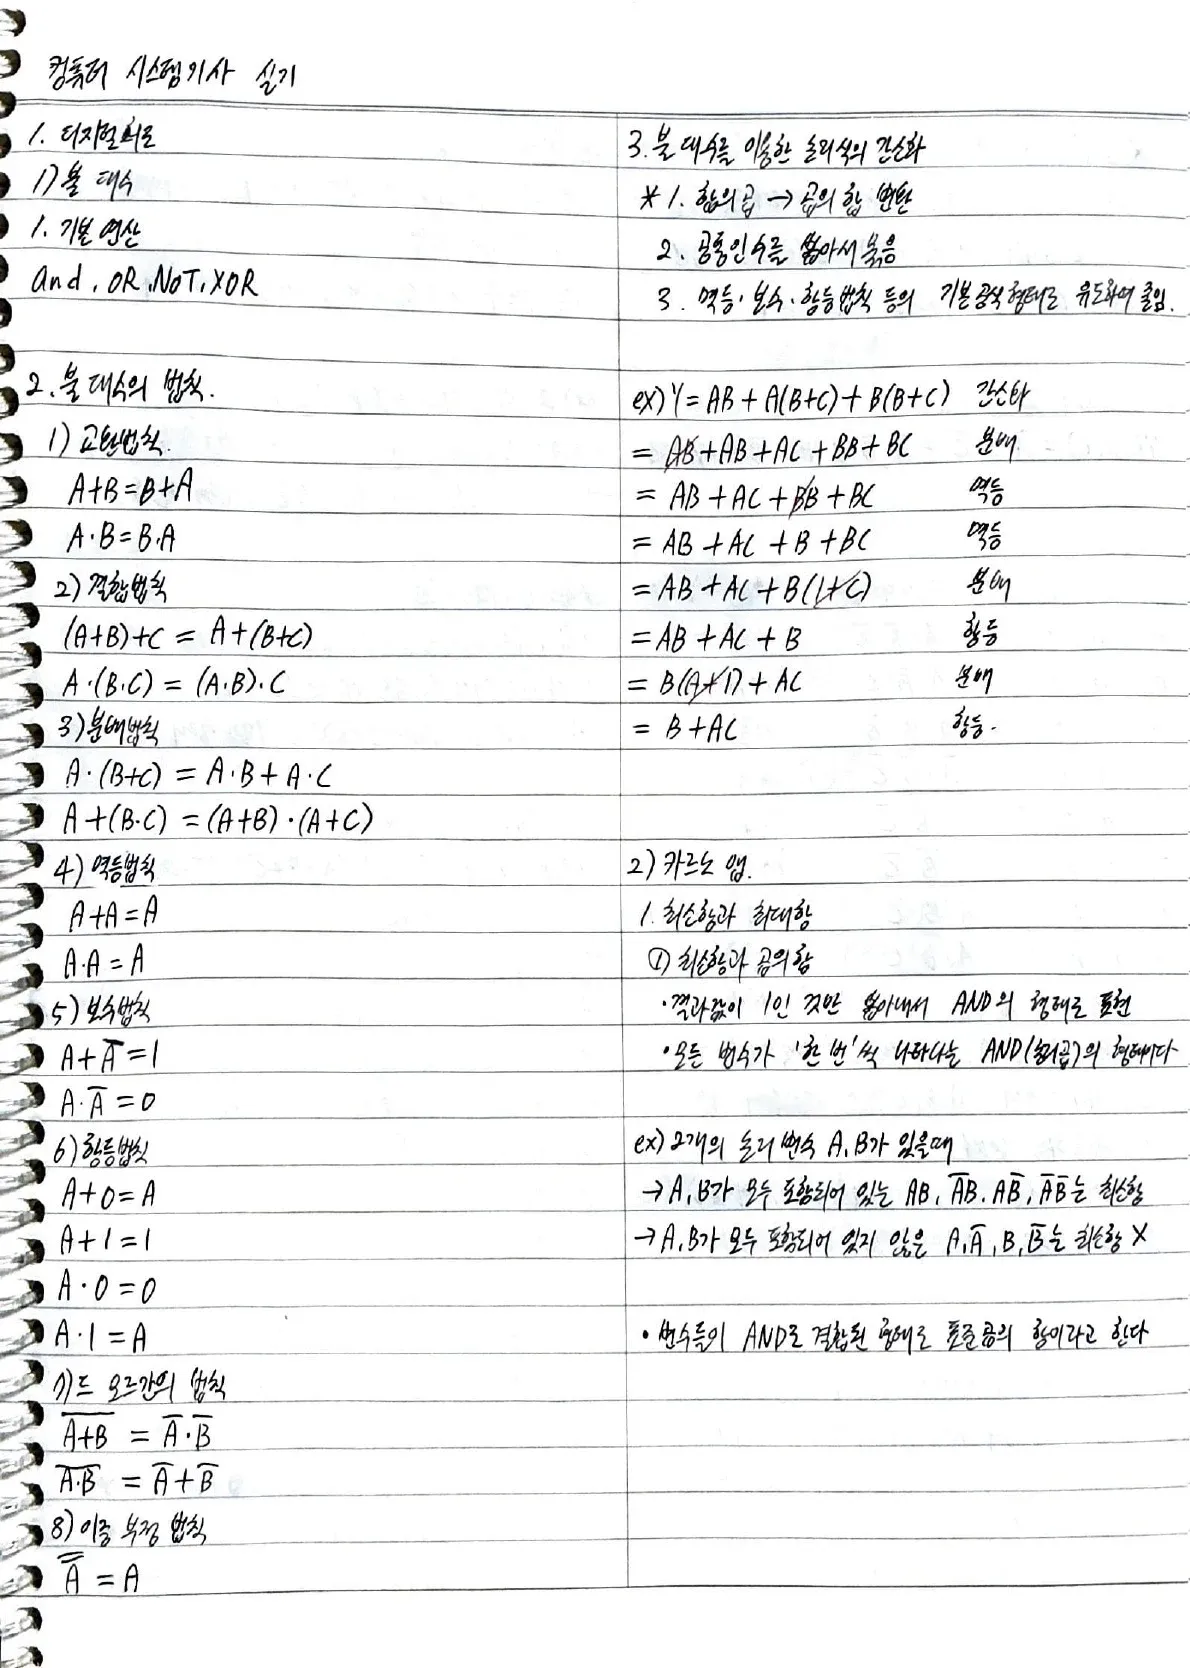 컴퓨터 시스템기사 실기
1. 디지털회로
1) 불 대수
1. 기본 연산
And, OR, NOT, XOR
2. 불 대수의 법칙.
1) 교환법칙.
A+B=B+A
A·B=B·A
2) 결합법칙
(A+B)+C = A+(B+C)
A·(B·C) = (A·B)·C
3) 분배법칙
A·(B+C) = A·B + A·C
A+(B·C) = (A+B)·(A+C)
4) 멱등법칙
A+A=A
A·A=A
5) 보수법칙
A+A̅=1
A·A̅=0
6) 항등법칙
A+0=A
A+1=1
A·0=0
A·1=A
7) 드 모르간의 법칙
A̅+̅B̅ = A̅·B̅
A̅·̅B̅ = A̅+B̅
8) 이중 부정 법칙
A̿ = A
3. 불 대수를 이용한 논리식의 간소화
* 1. 합의곱 → 곱의 합 변환
2. 공통인수를 뽑아서 묶음
3. 멱등·보수·항등법칙 등의 기본공식 형태로 유도하여 줄임.
ex) Y = AB + A(B+C) + B(B+C) 간소화
= AB + AB + AC + BB + BC 분배
= AB + AC + BB + BC 멱등
= AB + AC + B + BC 멱등
= AB + AC + B(1+C) 분배
= AB + AC + B 항등
= B(A+1) + AC 분배
= B + AC 항등.
2) 카르노 맵.
1. 최소항과 최대항
① 최소항과 곱의 합
·결과값이 1인 것만 뽑아내서 AND의 형태로 표현
·모든 변수가 '한 번'씩 나타나는 AND(논리곱)의 형태이다
ex) 2개의 논리 변수 A, B가 있을때
→ A, B가 모두 포함되어 있는 AB, A̅B, AB̅, A̅B̅는 최소항
→ A, B가 모두 포함되어 있지 않은 A, A̅, B, B̅는 최소항 X
·변수들이 AND로 결합된 형태로 표준곱의 항이라고 한다